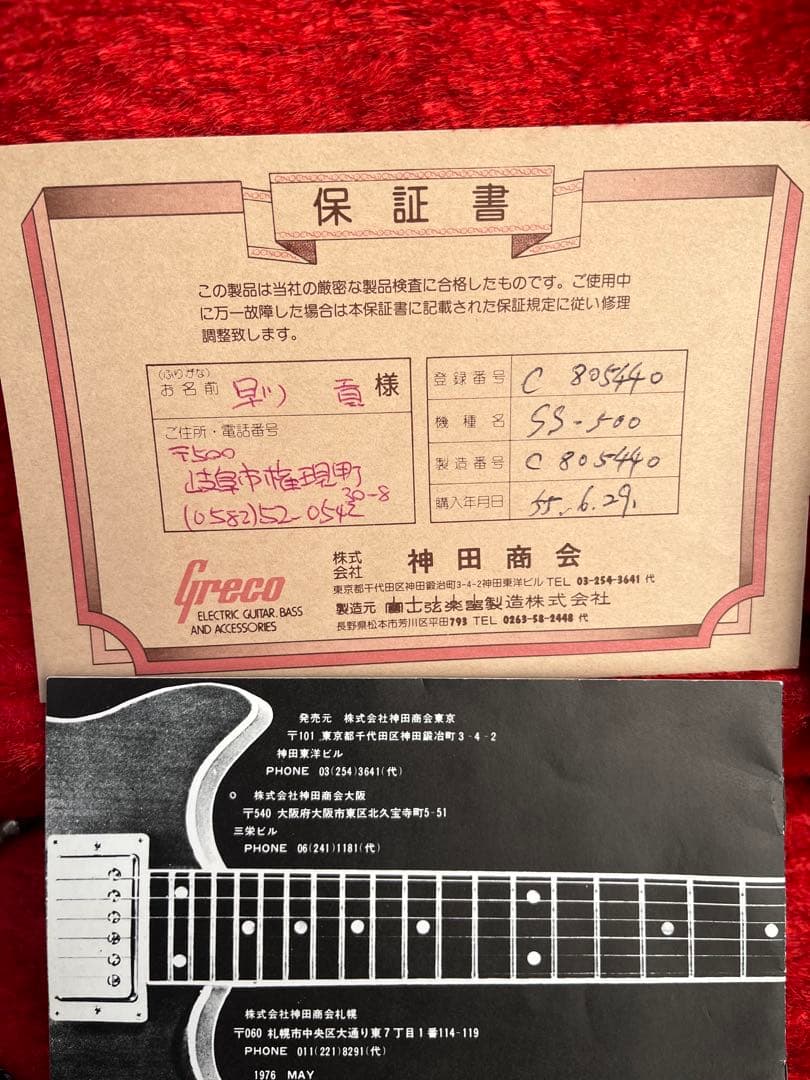 保証書
この製品は当社の厳密な製品検査に合格したものです。ご使用中
に万一故障した場合は本保証書に記載された保証規定に従い修理
調整致します。
(ふりがな)
お名前 様
ご住所・電話番号
〒500
岐阜市権現町
30-8
(0582)52-0542
登録番号 C 805440
機種名 SS-500
製造番号 C 805440
購入年月日 55.6.29.
Greco
ELECTRIC GUITAR, BASS
AND ACCESSORIES
株式会社 神田商会
東京都千代田区神田鍛冶町3-4-2神田東洋ビル TEL 03-254-3641 代
製造元 富士弦楽器製造株式会社
長野県松本市芳川区平田793 TEL 0263-58-2448 代
発売元 株式会社神田商会東京
〒101 東京都千代田区神田鍛冶町3-4-2
神田東洋ビル
PHONE 03(254)3641(代)
株式会社神田商会大阪
〒540 大阪府大阪市東区北久宝寺町5-51
三栄ビル
PHONE 06(241)1181(代)
株式会社神田商会札幌
〒060 札幌市中央区大通り東7丁目1番114-119
PHONE 011(221)8291(代)
1976 MAY